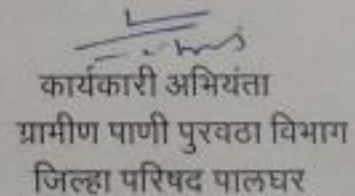 कार्यकारी अभियंता
ग्रामीण पाणी पुरवठा विभाग
जिल्हा परिषद पालघर